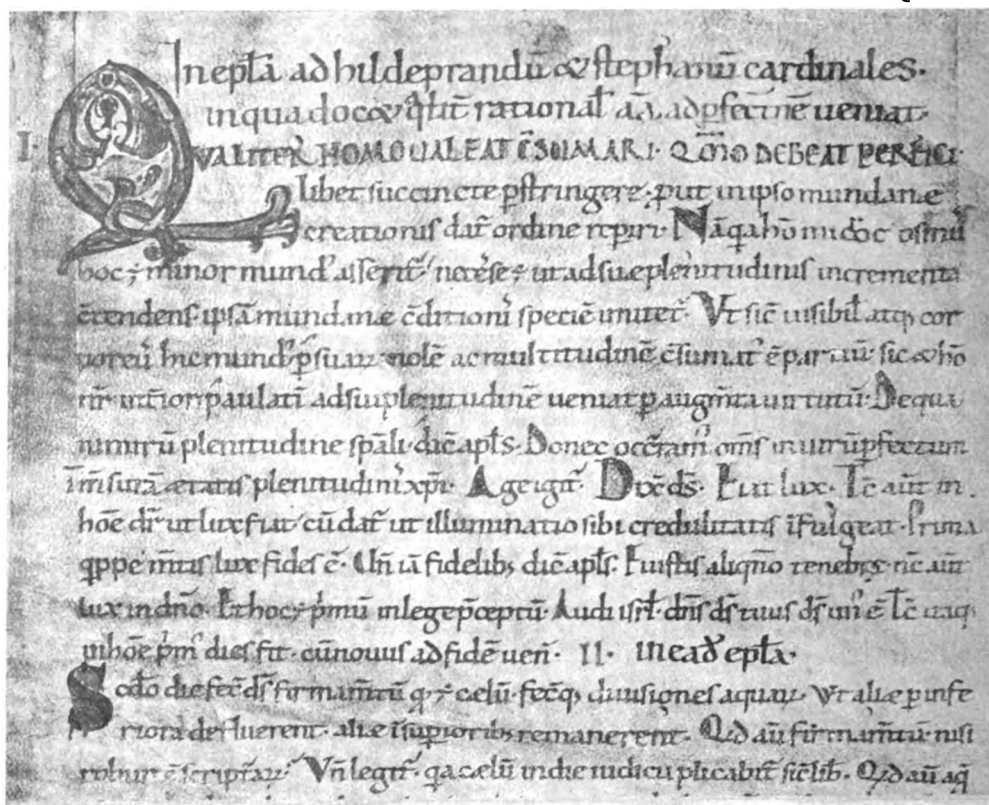 In ep̄la ad hildeprandū & stephanū cardinales.
in qua doc& q̄lit̄ rational̄ aīa ad p̄fectiōnē ueniat
I. QVALITER HOMO VALEAT C̄SVMARI. Q̄MO DEBEAT PERFICI.
libet succincte p̄stringere. put in ipso mundanę
creationis dat̄ ordine rep̄iri. Nā q̄a hō
hoc ÷ minor mund' asserit̄ necesse ÷ ut ad suę plenitudinis incrementa
c̄tendens. ipsā mundanę c̄ditioni speciē imitet̄. Vt sic uisibil̄ atq; cor
poreū hic mund' p̄ suaꝝ molē ac multitudinē c̄sumat̄ sic & hō
nr̄ int̄ior paulatī ad sui plenitudinē ueniat p augm̄ta uirtutū. De qua
nimirū plenitudine sp̄ali dic̄ apl̄s. Donec occ̄ram' om̄s in uirū p̄fectum
ī m̄surā ętatis plenitudinis xp̄i. Age igit̄. Dix̄ ds̄. Fiat lux. Tc̄ aut̄ in
hōe dr̄ ut lux fiat cū dat̄ ut illuminatio sibi credulitatis īfulgeat. Prima
q̄ppe m̄tis lux fides ē. Un̄ iā fidelib; dic̄ apl̄s. Fuistis aliqn̄o tenebrę. nc̄ aut̄
lux in dn̄o. Et hoc ÷ p̄mū in lege p̄ceptū. Audi isrl̄. dn̄s ds̄ tuus ds̄ un' ē. Tc̄ itaq;
in hōe p̄m' dies fit. cū nouus ad fidē uen̄. II. In ead̄ ep̄la.
Scd̄o die fec̄ ds̄ firmam̄tū q̄ ÷ cęlū. fec̄q; diuisiones aquaꝝ. Vt alię p infe
riora defluerent. alię ī supiorib; remanerent. Qd̄ aū firmam̄tū nisi
robur ē scripturaꝝ. Vn̄ legit̄. q̄a cęlū in die iudicii plicabit̄ sic̄ lib̄. Qd̄ aū aq̄